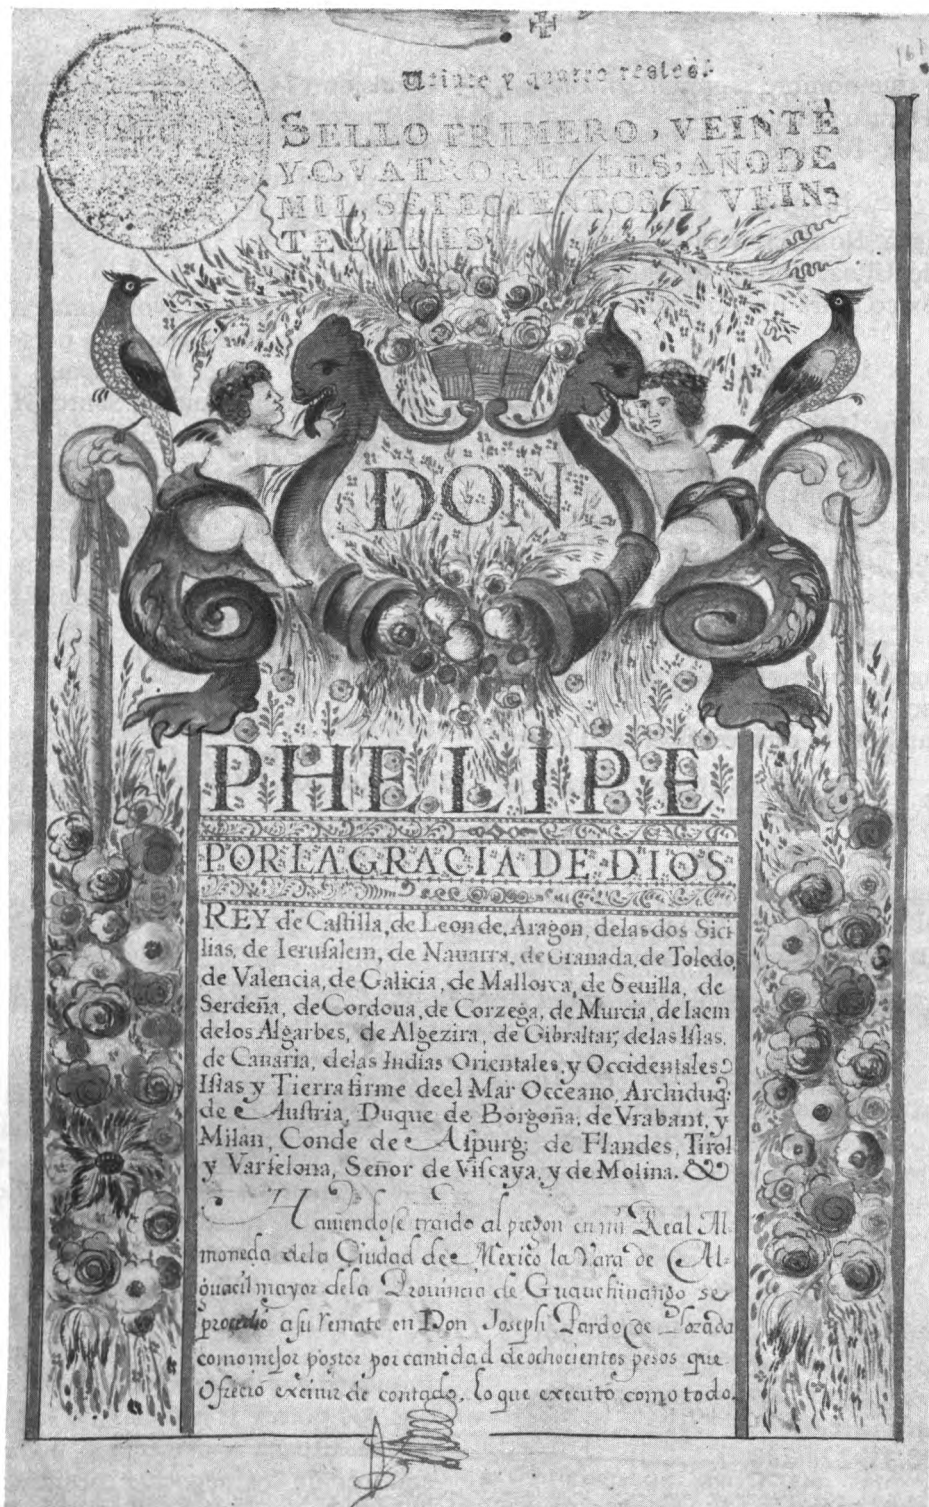 161
Veinte y quatro reales.
SELLO PRIMERO, VEINTE
Y QVATRO REALES, AÑO DE
MIL, SETECIENTOS Y VEIN-
TE Y TRES.
DON
PHELIPE
POR LA GRACIA DE DIOS
REY de Caſtilla, de Leon de, Aragon, delas dos Sici
lias, de Ieruſalem, de Nauarra, de Granada, de Toledo,
de Valencia, de Galicia, de Mallorca, de Seuilla, de
Serdeña, de Cordoua, de Corzega, de Murcia, de Iaen
delos Algarbes, de Algezira, de Gibraltar, delas Iſlas,
de Canaria, delas Indias Orientales, y Occidentales
Iſlas y Tierra firme deel Mar Occeano, Archiduq:
de Auſtria, Duque de Borgoña, de Vrabant, y
Milan, Conde de Aſpurg; de Flandes, Tirol
y Varſelona, Señor de Viſcaya, y de Molina. &
Hauiendoſe traido al pregon en mi Real Al-
moneda dela Ciudad de Mexico la Vara de Al-
guacil mayor dela Prouincia de Guauchinango se
procedio a ſu remate en Don Joseph Pardo de Lozada
como mejor postor por cantidad de ochocientos pesos que
Ofrecio exciuir de contado, lo que executo como todo,